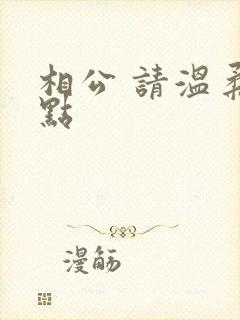 相公 請溫柔
點
漫觞